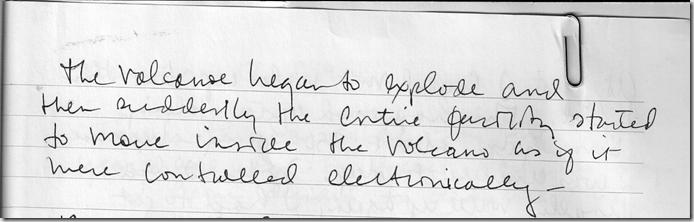 the volcanoe began to explode and
then suddenly the entire facility started
to move inside the volcano as if it
were controlled electronically –